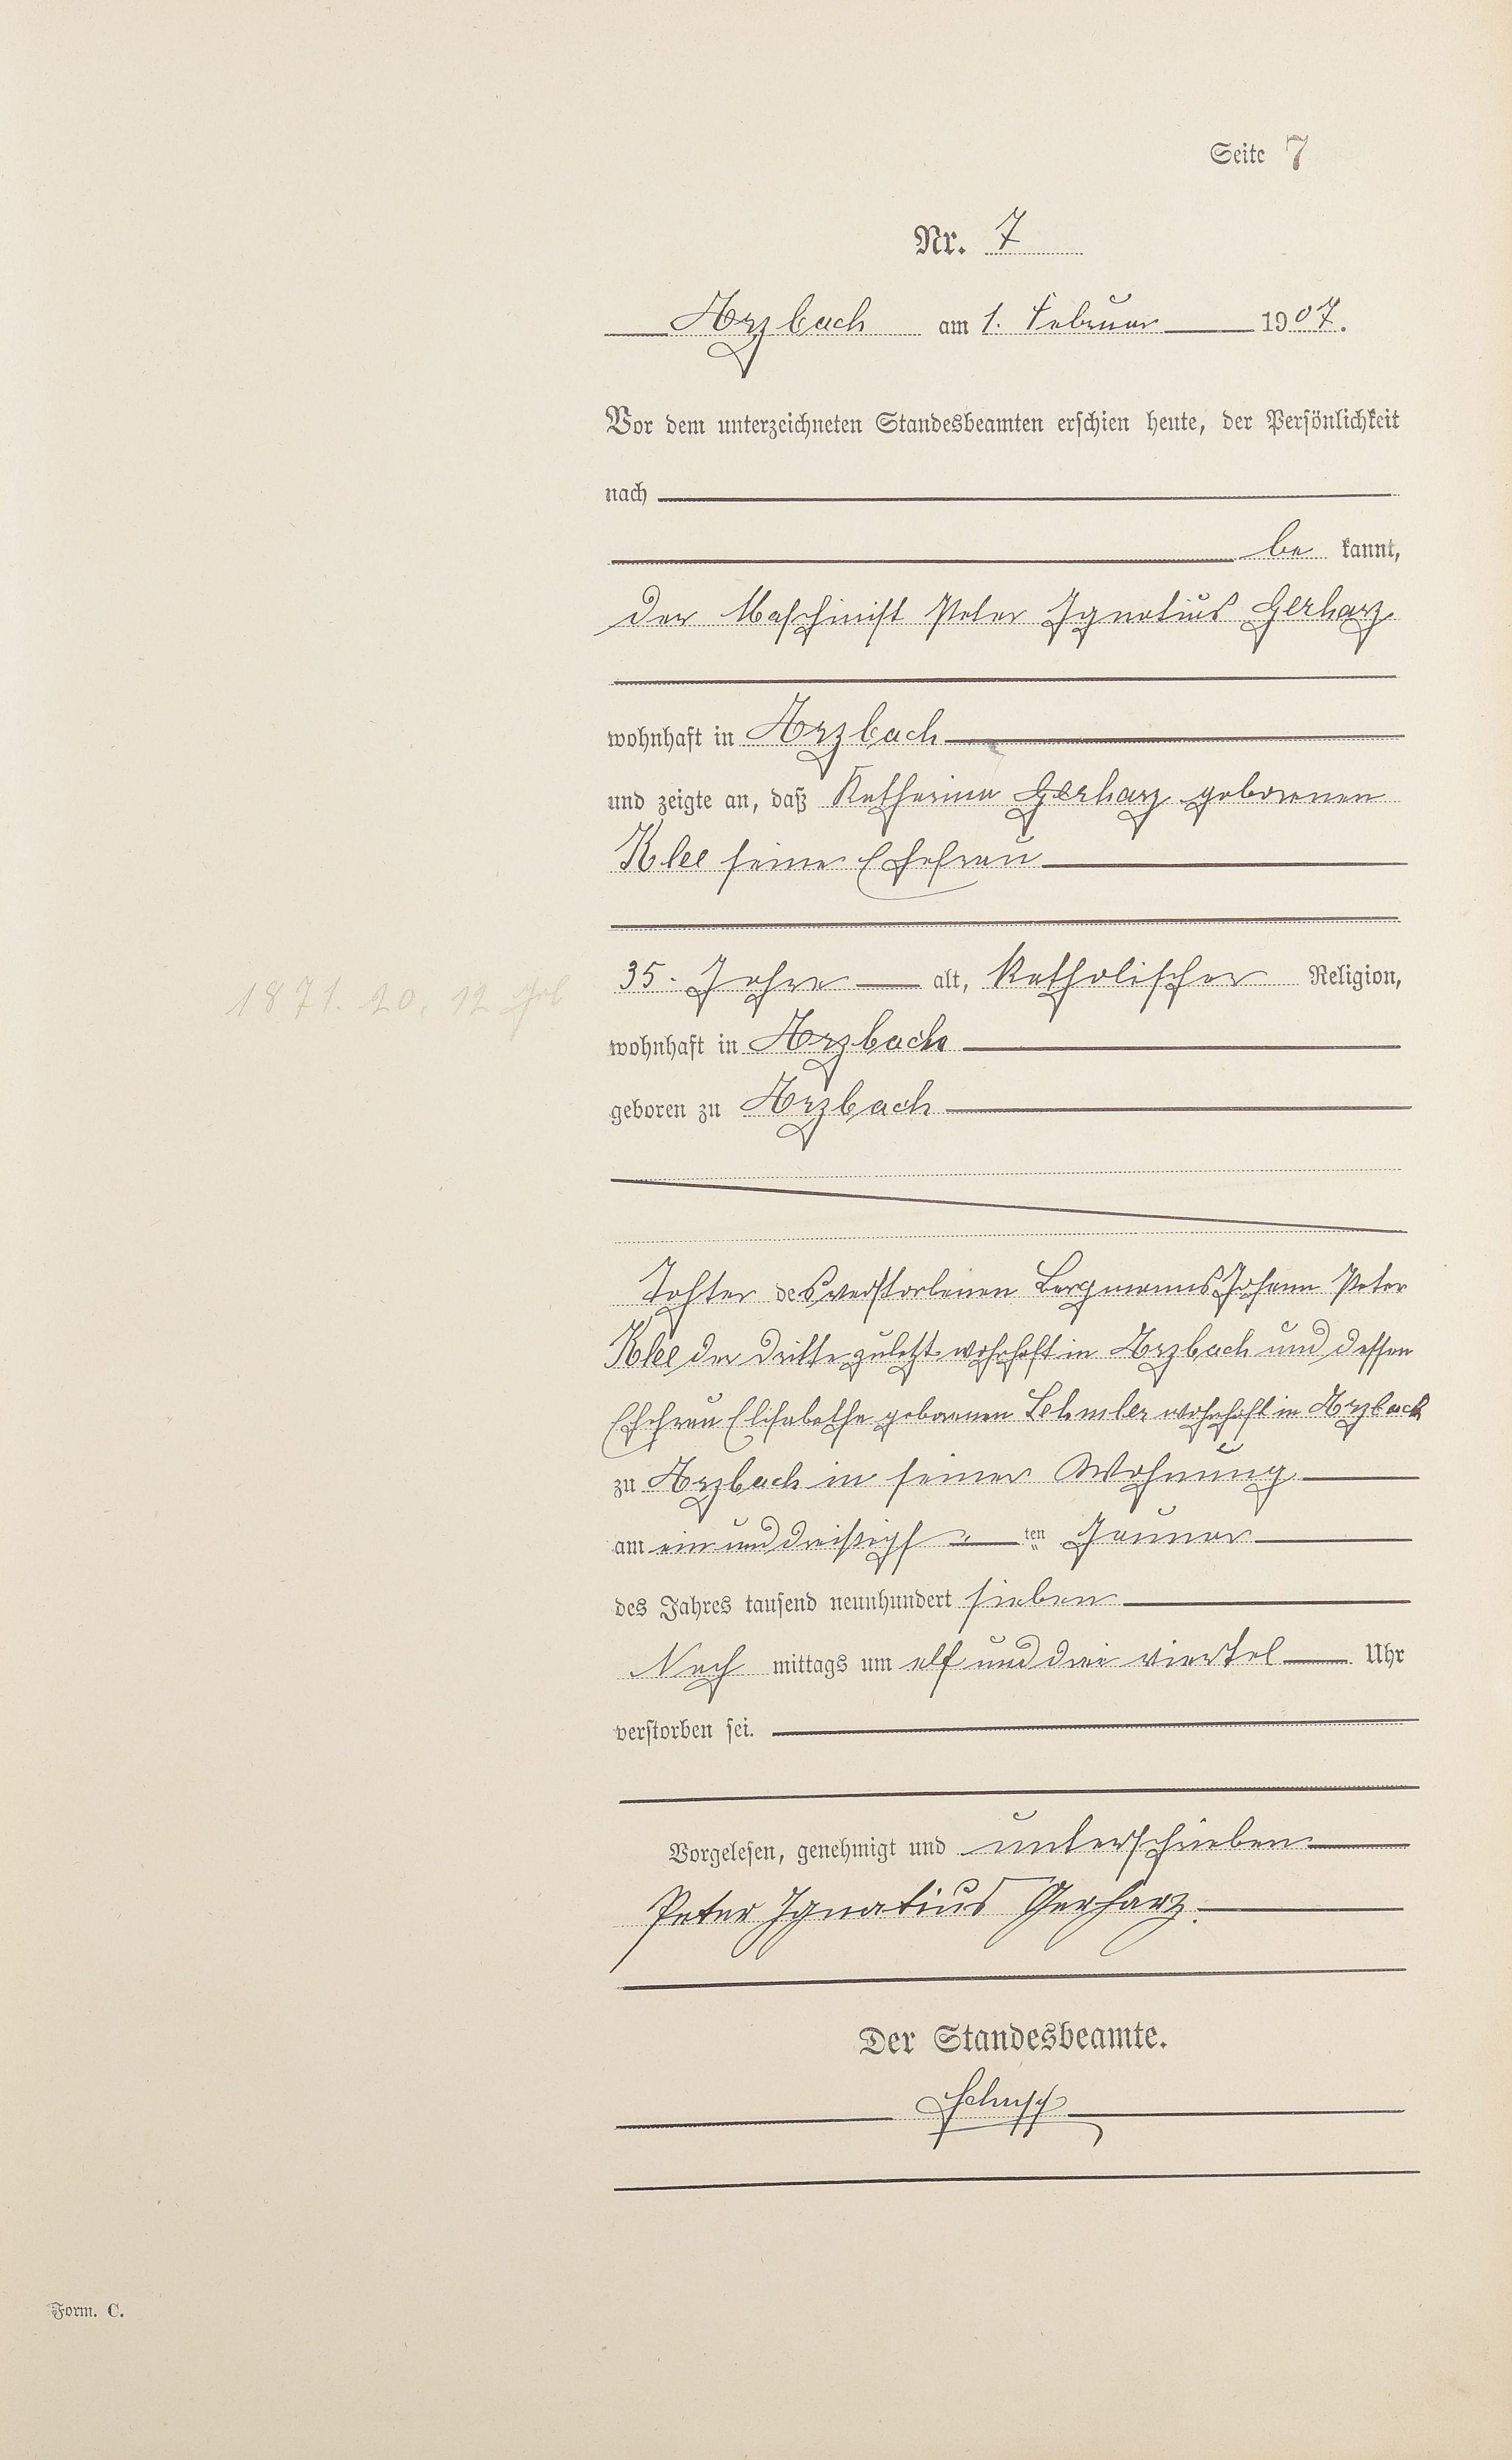 Seite 7
Nr. 7
Arzbach am 1. Februar 1907.
Vor dem unterzeichneten Standesbeamten erschien heute, der Persönlichkeit
nach
be kannt,
der Maschinist Peter Ignatius Gerharz
wohnhaft in Arzbach
und zeigte an, daß Katharina Gerharz geborenen
Klee seine Ehefrau
35. Jahre alt, Katholischer Religion,
1871. 20. 12 geb
wohnhaft in Arzbach
geboren zu Arzbach
Tochter des verstorbenen Bergmanns Johann Peter
Klee der dritte zuletzt wohnhaft in Arzbach und dessen
Ehefrau Elisabetha geborenen wohnhaft in Arzbach
zu Arzbach in seiner Wohnung
am ein und dreißigs ten Januar
des Jahres tausend neunhundert sieben
Nach mittags um elf und drei viertel Uhr
verstorben sei.
Vorgelesen, genehmigt und unterschrieben
Peter Ignatius Gerharz.
Der Standesbeamte.
Form. C.